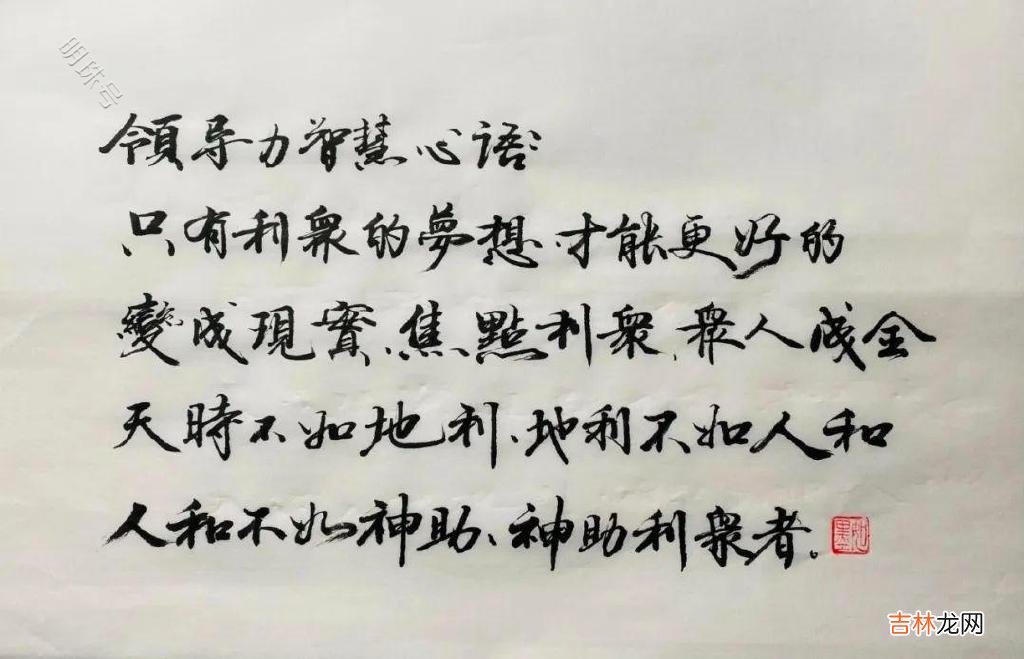 明珠号
領导力智慧心语：
只有利眾的夢想、才能更好的
變成現實、焦點利眾、眾人成金
天時不如地利、地利不如人和
人和不如神助、神助利眾者。
吉林龙网